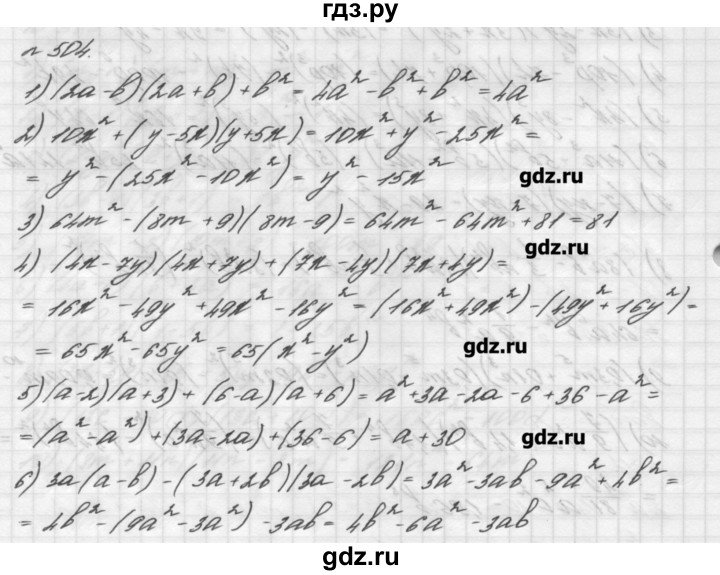 гдз.ру
№ 504.
1) (2a-b)(2a+b)+b² = 4a²-b²+b² = 4a²
2) 10x²+(y-5x)(y+5x) = 10x²+y²-25x² =
= y²-(25x²-10x²) = y²-15x²
gdz.ru
3) 64m²-(8m+9)(8m-9) = 64m²-64m²+81 = 81
gdz.ru
4) (4x-7y)(4x+7y)+(7x-4y)(7x+4y) =
= 16x²-49y²+49x²-16y² = (16x²+49x²)-(49y²+16y²) =
= 65x²-65y² = 65(x²-y²)
gdz.ru
5) (a-2)(a+3)+(6-a)(a+6) = a²+3a-2a-6+36-a² =
= (a²-a²)+(3a-2a)+(36-6) = a+30
gdz.ru
6) 3a(a-b)-(3a+2b)(3a-2b) = 3a²-3ab-9a²+4b² =
= 4b²-(9a²-3a²)-3ab = 4b²-6a²-3ab
gdz.ru